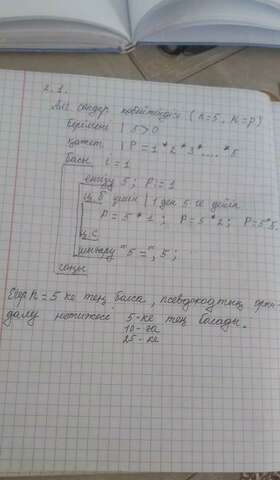 2.1.
Алг сандар көбейтіндісі (n=5, K=p)
берілген | 5>0
қажет | P=1*2*3*....*5
басы i=1
енгізу 5; P:=1
ц.б үшін | 1 ден 5 ке дейін
P=5*1; P=5*2; P=5*5
ц.с
шығару "5=", 5;
соңы
Егер n=5 ке тең болса, псевдокодтың орын-
далу нәтижесі 5-ке тең болады.
10-ға
25-ке